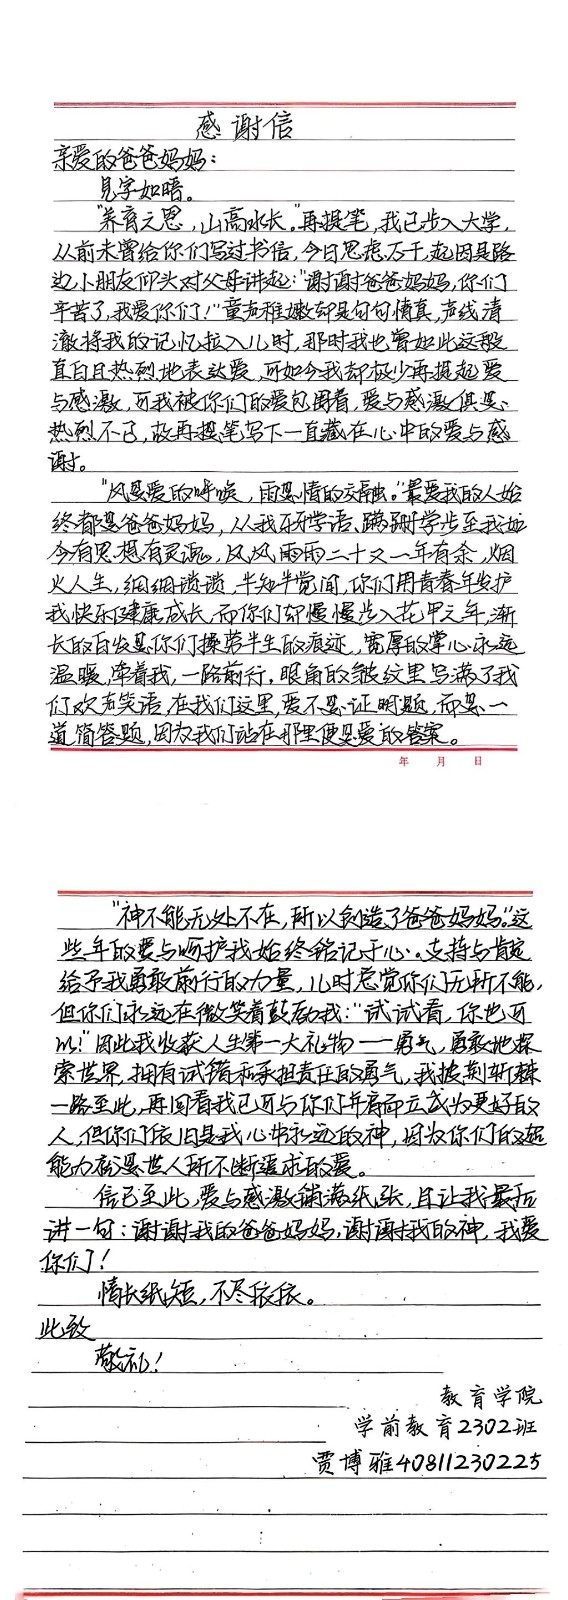 感谢信
亲爱的爸爸妈妈：
见字如晤。
“养育之恩，山高水长。”再提笔，我已步入大学，
从前未曾给你们写过书信，今日思虑万千，起因是路
边小朋友仰头对父母讲起：“谢谢爸爸妈妈，你们
辛苦了，我爱你们！”童声稚嫩却是句句情真，声线清
澈将我的记忆拉入儿时，那时我也曾如此这般
直白且热烈地表达爱，可如今我却极少再提起爱
与感激，可我被你们的爱包围着，爱与感激俱是
热烈不已，故再提笔写下一直藏在心中的爱与感
谢。
“风是爱的呼唤，雨是情的交融。”最爱我的人始
终都是爸爸妈妈，从我牙牙学语、蹒跚学步至我如
今有思想有灵魂，风风雨雨二十又一年有余，烟
火人生，细细琐琐，半知半觉间，你们用青春年岁护
我快乐健康成长，而你们却慢慢步入花甲之年，渐
长的白发是你们操劳半生的痕迹，宽厚的掌心永远
温暖，牵着我，一路前行，眼角的皱纹里写满了我
们欢声笑语，在我们这里，爱不是证明题，而是一
道简答题，因为我们站在那里便是爱的答案。
年 月 日
“神不能无处不在，所以创造了爸爸妈妈。”这
些年的爱与呵护我始终铭记于心。支持与肯定
给予我勇敢前行的力量，儿时总觉你们无所不能，
但你们永远在微笑着鼓励我：“试试看，你也可
以！”因此我收获人生第一大礼物——勇气，勇敢地探
索世界，拥有试错和承担责任的勇气，我披荆斩棘
一路至此，再回看我已可与你们并肩而立成为更好的
人，但你们依旧是我心中永远的神，因为你们的超
能力应是世人所不断追求的爱。
信已至此，爱与感激铺满纸张，且让我最后
讲一句：谢谢我的爸爸妈妈，谢谢我的神，我爱
你们！
情长纸短，不尽依依。
此致
敬礼！
教育学院
学前教育2302班
贾博雅40811230225